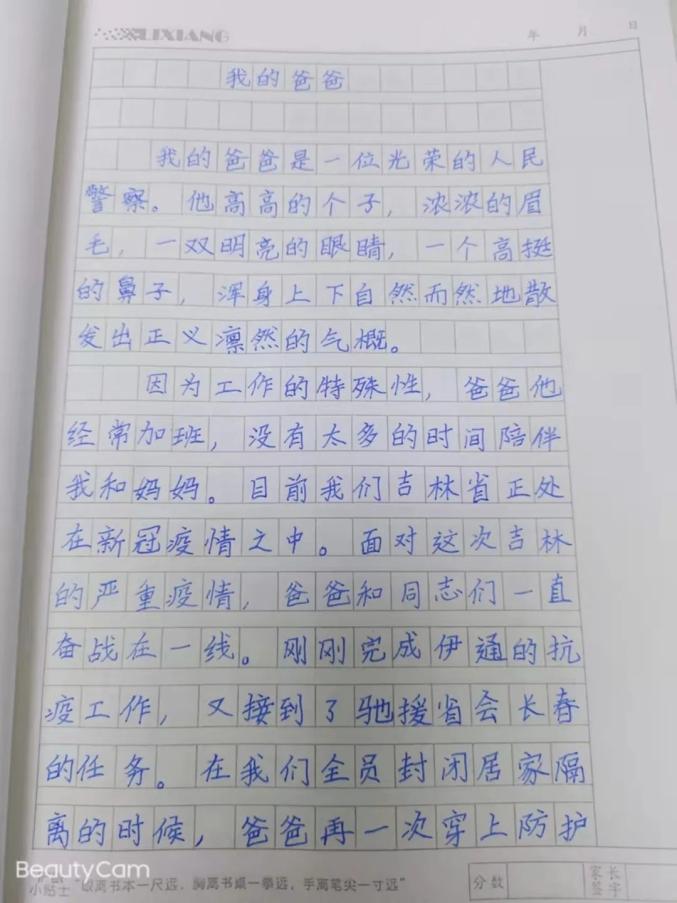 LIXIANG
年 月 日
我的爸爸
我的爸爸是一位光荣的人民
警察。他高高的个子，浓浓的眉
毛，一双明亮的眼睛，一个高挺
的鼻子，浑身上下自然而然地散
发出正义凛然的气概。
因为工作的特殊性，爸爸他
经常加班，没有太多的时间陪伴
我和妈妈。目前我们吉林省正处
在新冠疫情之中。面对这次吉林
的严重疫情，爸爸和同志们一直
奋战在一线。刚刚完成伊通的抗
疫工作，又接到了驰援省会长春
的任务。在我们全员封闭居家隔
离的时候，爸爸再一次穿上防护
BeautyCam
小贴士 离书本一尺远，胸离书桌一拳远，手离笔尖一寸远”
分数
家长
签字